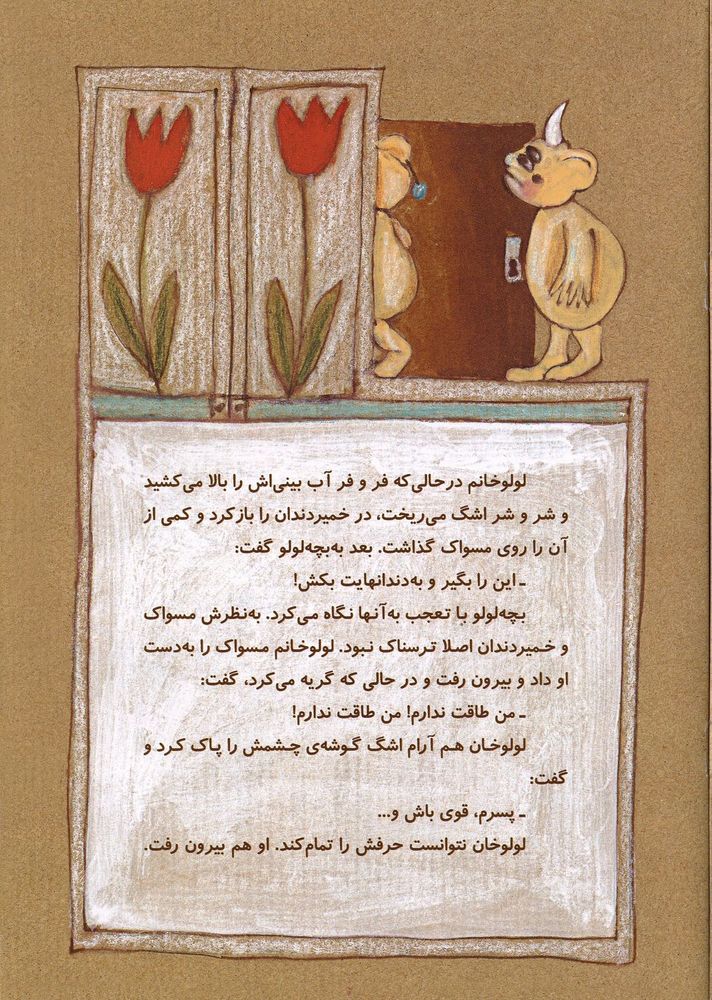 لولوخانم درحالی‌که فر و فر آب بینی‌اش را بالا می‌کشید
و شر و شر اشگ می‌ریخت، در خمیردندان را بازکرد و کمی از
آن را روی مسواک گذاشت. بعد به‌بچه‌لولو گفت:
ـ این را بگیر و به‌دندانهایت بکش!
بچه‌لولو با تعجب به‌آنها نگاه می‌کرد. به‌نظرش مسواک
و خمیردندان اصلا ترسناک نبود. لولوخانم مسواک را به‌دست
او داد و بیرون رفت و در حالی که گریه می‌کرد، گفت:
ـ من طاقت ندارم! من طاقت ندارم!
لولوخان هم آرام اشگ گوشه‌ی چشمش را پاک کرد و
گفت:
ـ پسرم، قوی باش و...
لولوخان نتوانست حرفش را تمام‌کند. او هم بیرون رفت.